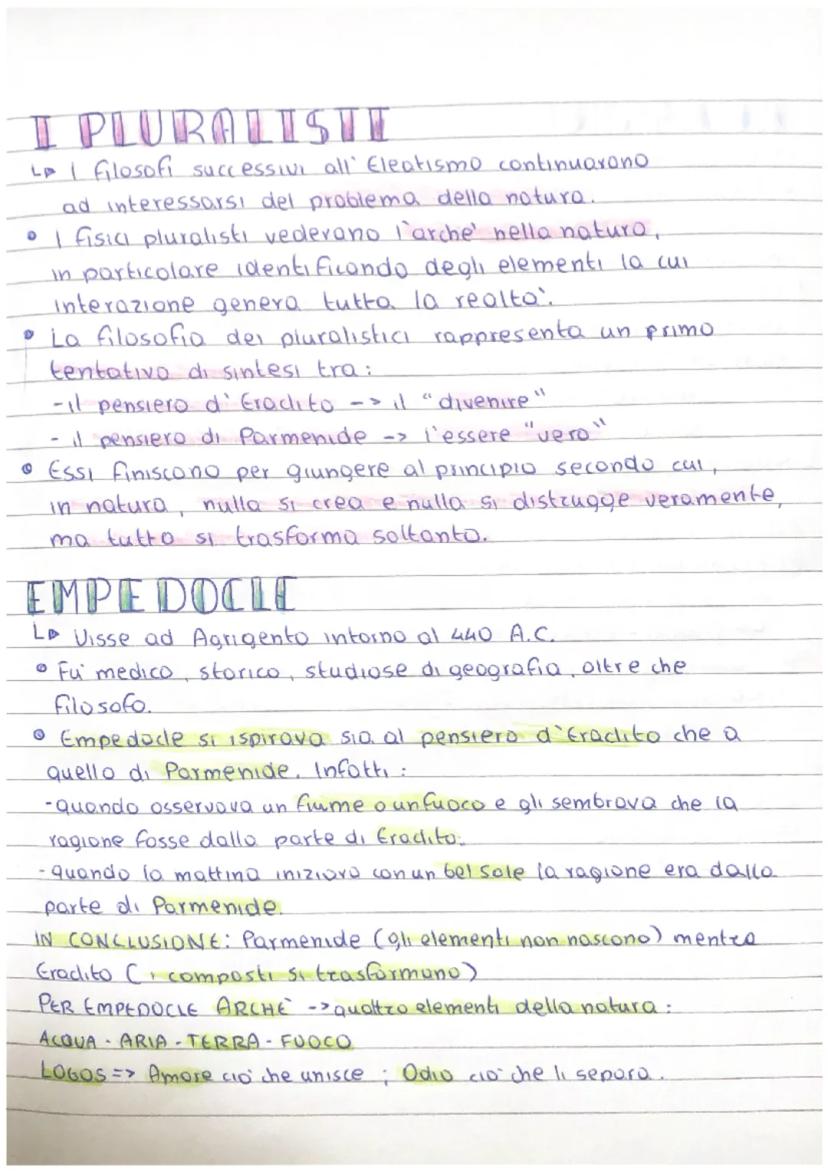 I PLURALISTI
↳ I filosofi successivi all' Eleatismo continuarono
ad interessarsi del problema della natura.
• I fisici pluralisti vedevano l'arche' nella natura,
in particolare identificando degli elementi la cui
interazione genera tutta la realtà.
• La filosofia dei pluralistici rappresenta un primo
tentativo di sintesi tra:
-il pensiero d' Eraclito -> il "divenire"
- il pensiero di Parmenide -> l'essere "vero"
• Essi finiscono per giungere al principio secondo cui,
in natura, nulla si crea e nulla si distrugge veramente,
ma tutto si trasforma soltanto.
EMPEDOCLE
↳ Visse ad Agrigento intorno al 440 A.C.
• Fu' medico, storico, studiose di geografia, oltre che
filosofo.
• Empedocle si ispirava sia al pensiero d'Eraclito che a
quello di Parmenide. Infatti:
-quando osservava un fiume o un fuoco e gli sembrava che la
ragione fosse dalla parte di Eraclito.
-quando la mattina iniziava con un bel sole la ragione era dalla
parte di Parmenide.
IN CONCLUSIONE: Parmenide (gli elementi non nascono) mentre
Eraclito (i composti si trasformano)
PER EMPEDOCLE ARCHÈ -> quattro elementi della natura:
ACQUA - ARIA - TERRA - FUOCO
LOGOS => Amore ciò che unisce ; Odio ciò che li separa.